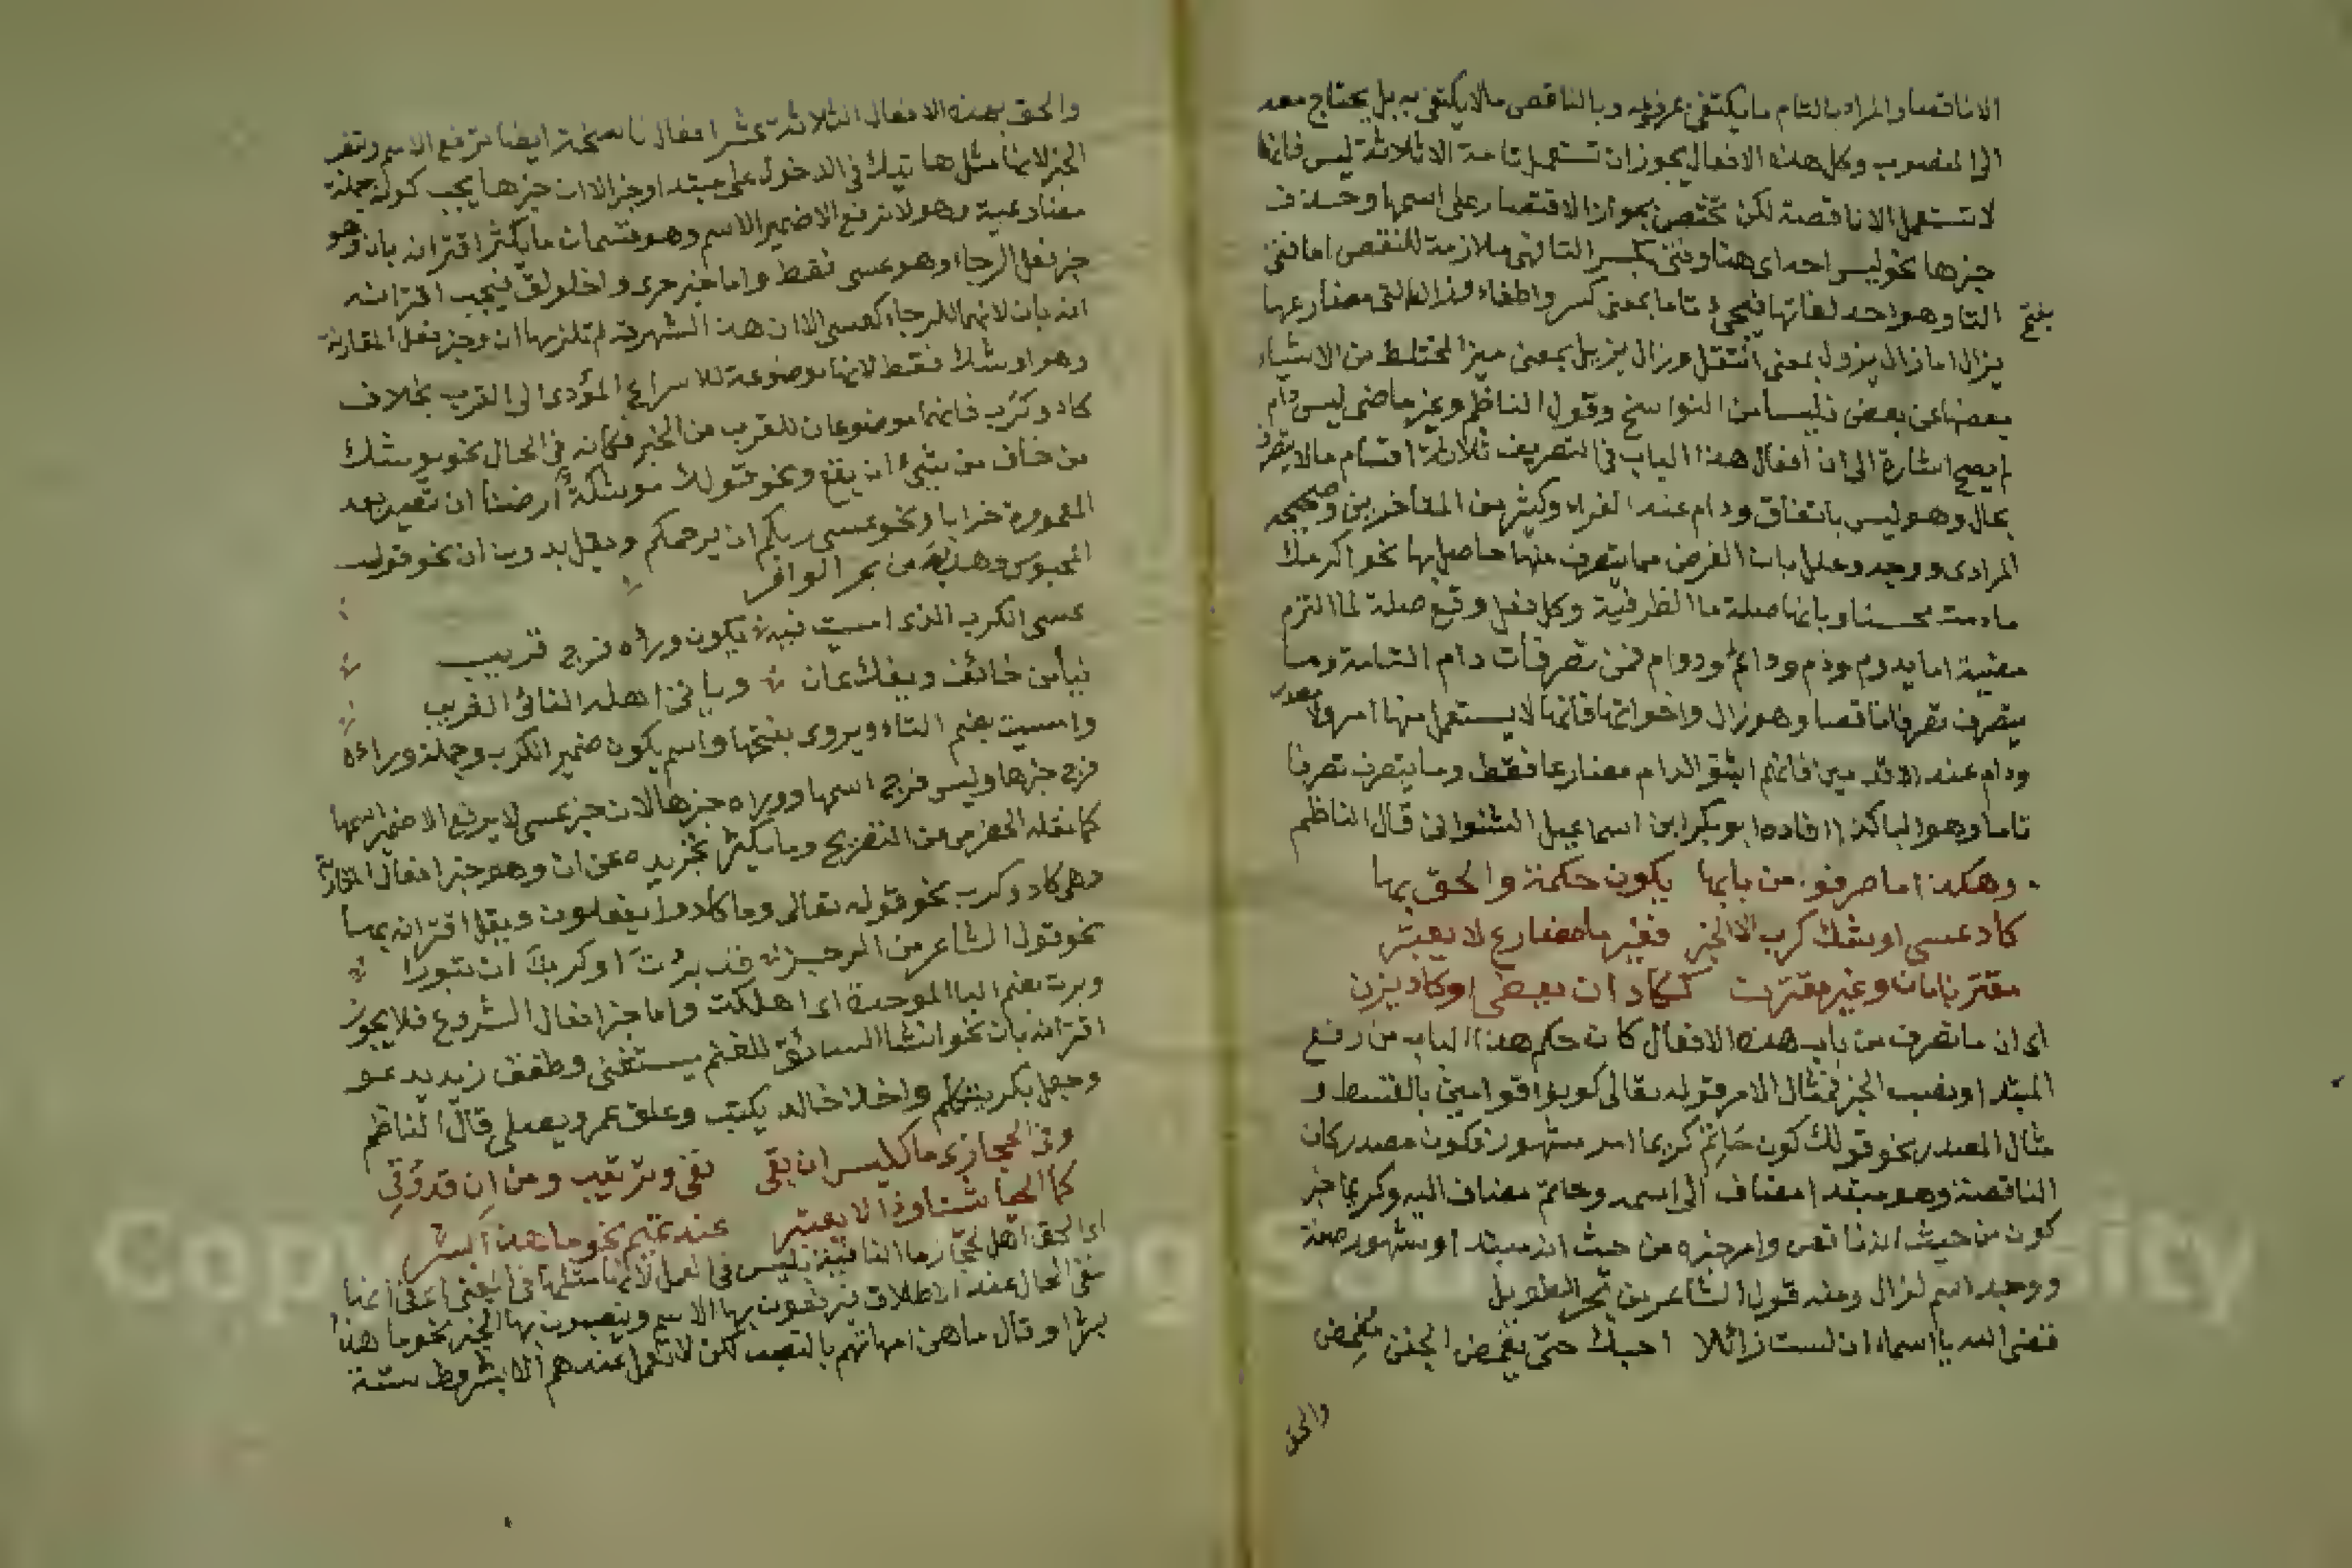 الا ناقصا والمراد بالتام ما يكتفى بمرفوعه وبالناقص ما لا يكتفى به بل يحتاج معه
الى المنصوب وكل هذه الافعال يجوز ان تستعمل تامة الا ثلاثة ليس فانها
لا تستعمل الا ناقصة لكن تختص بجواز الاقتصار على اسمها وحذف
خبرها نحو ليس احد اى هنا وفتئ بكسر التا فهى ملازمة للنقص اما فتئ
بفتح
التا وهو احد لغاتها فيجئ تاما بمعنى كسر واطفاء وزال التى مضارعها
يزال اما زال يزول بمعنى انتقل وزال يزيل بمعنى ميز المختلط من الاشياء
بعضها عن بعض فليسا من النواسخ وقول الناظم وغير ماضى ليس دام
لم يصح اشارة الى ان افعال هذا الباب فى التصريف ثلاثة اقسام ما لا يتصرف
بحال وهو ليس باتفاق ودام عند الفراء وكثير من المتأخرين وصححه
المرادى ووجه وعلل بان الغرض مما يتصرف منها حاصل بها نحو اكرمك
ما دمت محسنا وبانها صلة ما الظرفية وكل فعل وقع صلة لما التزم
مضيه اما يدوم ودم ودائم ودوام فمن تصرفات دام التامة وما
يتصرف تصرفا ناقصا وهو زال واخواتها فانها لا يستعمل منها امر ولا مصدر
ودام عند الاقدمين فانهم اثبتوا لدام مضارعا فقط وما يتصرف تصرفا
تاما وهو الباقى كذا افاده ابو بكر ابن اسماعيل الشنوانى قال الناظم
وهكذا ما صرفوا من بابها يكون حكمه والحق بها
كاد عسى اوشك كرب الا الخبر فغير ما مضارع لا يعتبر
مقترنا بان وغير مقترن ككاد ان يمضى او كاد يزن
اى ان ما تصرف من باب هذه الافعال كان حكم هذا الباب من رفع
المبتدا ونصب الخبر فمثال الامر قوله تعالى كونوا قوامين بالقسط و
مثال المصدر نحو قولك كون حاتم كريما امر مشهور فكون مصدر كان
الناقصة وهو مبتدا مضاف الى اسمه وحاتم مضاف اليه وكريما خبر
كون من حيث انه ناقص وامر خبره من حيث انه مبتدا ومشهور صفة
ووجد اسم لزال ومنه قول الشاعر من بحر الطويل
قضى الله يا اسماء ان لست زائلا احبك حتى يغمض الجفن مغمض
والحق
والحق بهذه الافعال الثلاثة عشر افعال ناسخة ايضا ترفع الاسم وتنصب
الخبر لانها مثل هاتيك فى الدخول على مبتدا وخبر الا ان خبرها يجب كونه جملة
مضارعية وهو لا يرفع الا ضمير الاسم وهو قسمان ما يكثر اقترانه بان وهو
خبر فعل الرجاء وهو عسى فقط واما خبر حرى واخلولق فيجب اقترانه
انه بان لانهما للرجاء كعسى الا ان هذه الشهرة لم تلزمها ان وخبر فعل المقاربة
وهو اوشك فقط لانها موضوعة للاسراع المؤدى الى القرب بخلاف
كاد وكرب فانهما موضوعان للقرب من الخبر فكانه فى الحال نحو يوشك
من خاف من شئ ان يقع ونحو قولك موشكة ارضنا ان تصير بعد
المعمورة خرابا ونحو عسى ربكم ان يرحمكم ويقل بدون ان نحو قول
المحبوس وهذبة من بحر الوافر
عسى الكرب الذى امسيت فيه يكون وراءه فرج قريب
فيأمن خائف ويفك عان وياتى اهله النائى الغريب
وامسيت بضم التاء ويروى بفتحها واسم يكون ضمير الكرب وجملة وراءه
فرج خبرها وليس فرج اسمها ووراه خبرها لان خبر عسى لا يرفع الا ضمير اسمها
كما نقله الحضرمى عن التصريح وما يكثر تجريده عن ان وهو خبر افعال المقاربة
وهى كاد وكرب نحو قوله تعالى وما كادوا يفعلون ويقل اقترانه بها
نحو قول الشاعر من الرجز قد برت او كربت ان تبورا
وبرت بضم البا الموحدة اى هلكت واما خبر افعال الشروع فلا يجوز
اقترانه بان نحو انشا السائق للغنم يستغنى وطفق زيد يدعو
وجعل بكر ينظم واخذ خالد يكتب وعلق عمرو يصلى قال الناظم
وفى الحجازى ما كليس ان بقى نفى وترتيب ومن ان قد وقى
كما الحيا شتا وذا لا يعتبر عند تميم نحو ما هذا بشر
اى الحق اهل الحجاز ما النافية بليس فى العمل لانها مثلها فى المعنى اعنى انها
نفى الحال عند الاطلاق فيرفعون بها الاسم وينصبون بها الخبر نحو ما هذا
بشرا وقال ما هن امهاتهم بالنصب لكن لا تعمل عندهم الا بشروط ستة